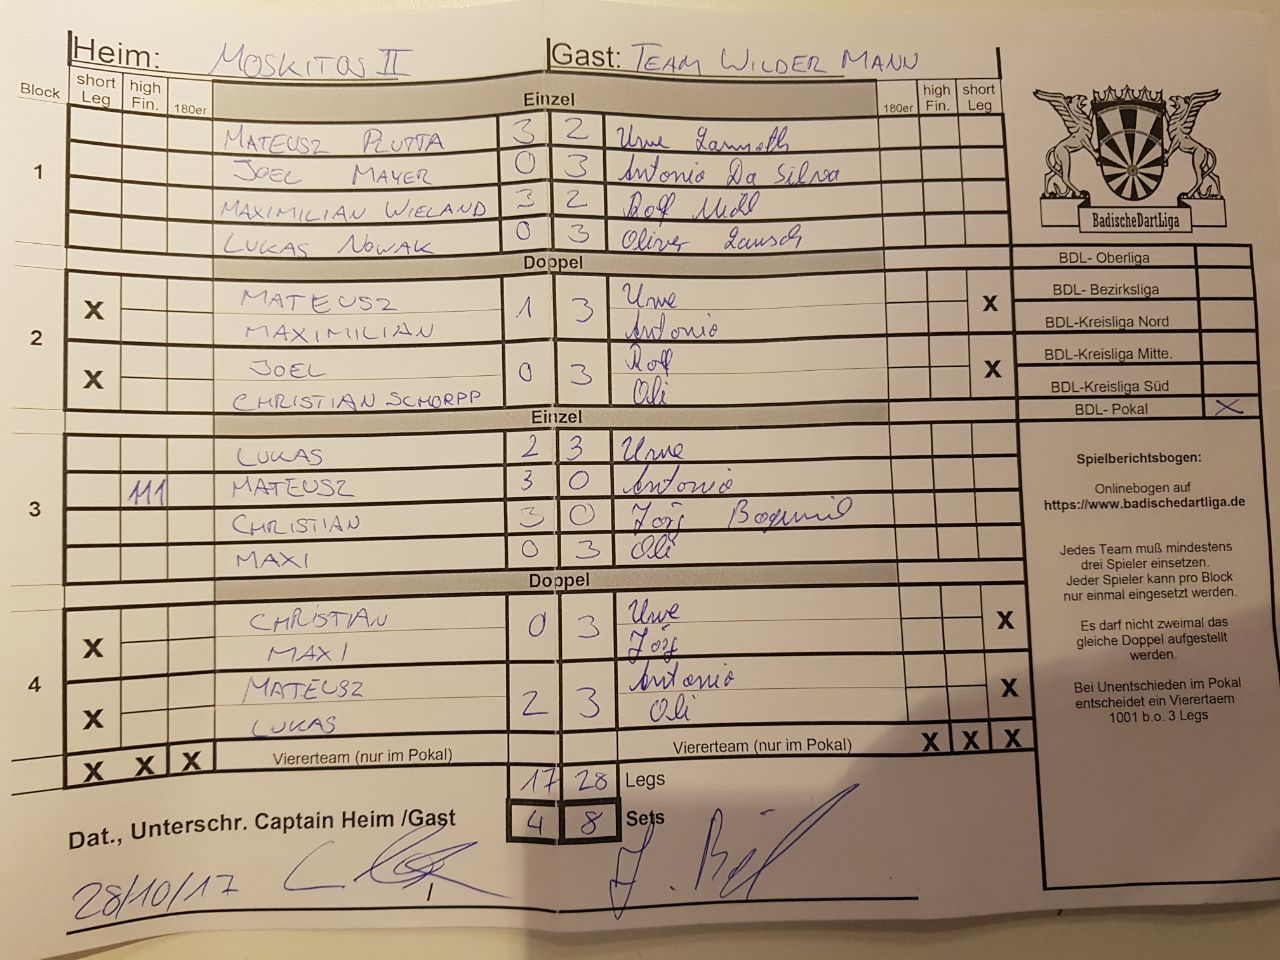 Heim: MOSKITOS II Gast: TEAM WILDER MANN
Block short Leg high Fin. 180er Einzel 180er high Fin. short Leg
1
MATEUSZ PLUTTA 3 2 Uwe
JOEL MAYER 0 3 Antonio Da Silva
MAXIMILIAN WIELAND 3 2 Rolf
LUKAS NOWAK 0 3 Oliver
Doppel
2
X MATEUSZ 1 3 Uwe X
MAXIMILIAN Antonio
X JOEL 0 3 Rolf X
CHRISTIAN SCHORPP Oli
Einzel
3
LUKAS 2 3 Uwe
111 MATEUSZ 3 0 Antonio
CHRISTIAN 3 0 Jörg
MAXI 0 3 Oli
Doppel
4
X CHRISTIAN 0 3 Uwe X
MAXI Jörg
X MATEUSZ 2 3 Antonio X
LUKAS Oli
X X X Viererteam (nur im Pokal) Viererteam (nur im Pokal) X X X
17 28 Legs
4 8 Sets
Dat., Unterschr. Captain Heim /Gast
28/10/17
BadischeDartLiga
BDL- Oberliga
BDL- Bezirksliga
BDL-Kreisliga Nord
BDL-Kreisliga Mitte.
BDL-Kreisliga Süd
BDL- Pokal X
Spielberichtsbogen:
Onlinebogen auf
https://www.badischedartliga.de
Jedes Team muß mindestens
drei Spieler einsetzen.
Jeder Spieler kann pro Block
nur einmal eingesetzt werden.
Es darf nicht zweimal das
gleiche Doppel aufgestellt
werden.
Bei Unentschieden im Pokal
entscheidet ein Vierertaem
1001 b.o. 3 Legs